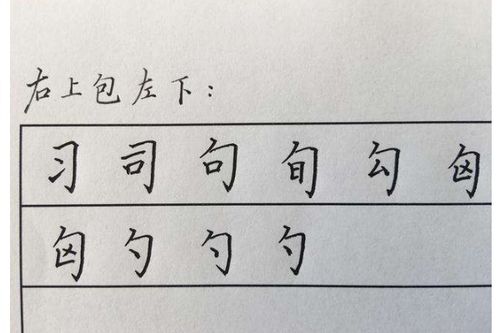 右上包左下：
习司句旬勾匈
匈勺勺勺